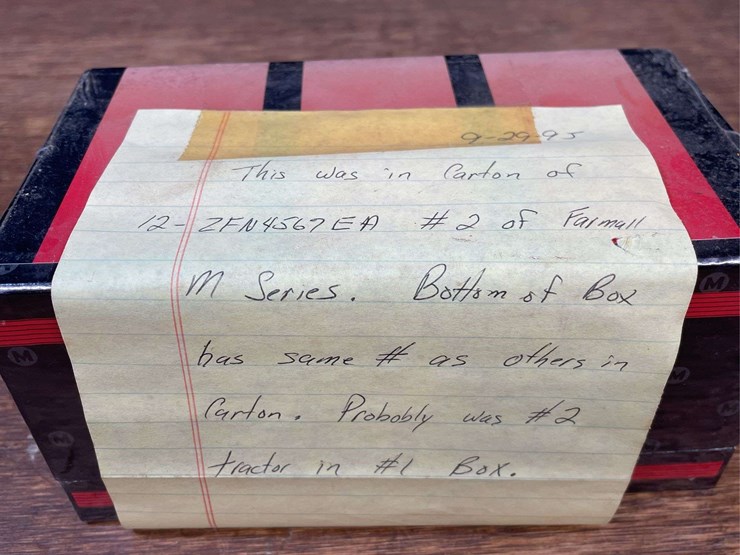 9-29-95
This was in Carton of
12- ZFN4567EA #2 of Farmall
M Series. Bottom of Box
has same # as others in
Carton. Probobly was #2
tractor in #1 Box.
M
M
M
M